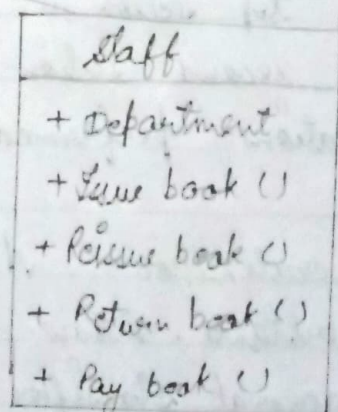 Staff
+ Department
+ Issue book ()
+ Reissue book ()
+ Return book ()
+ Pay book ()